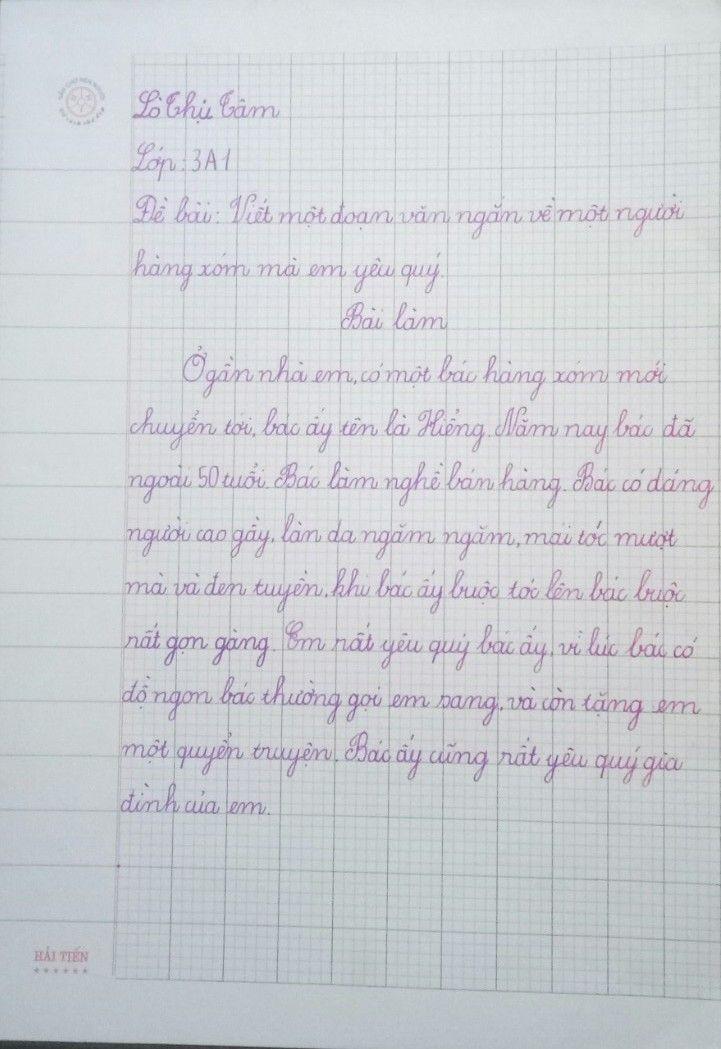 Lò Thị Tâm
Lớp: 3A1
Đề bài: Viết một đoạn văn ngắn về một người
hàng xóm mà em yêu quý.
Bài làm
Ở gần nhà em, có một bác hàng xóm mới
chuyển tới, bác ấy tên là Hiểng. Năm nay bác đã
ngoài 50 tuổi. Bác làm nghề bán hàng. Bác có dáng
người cao gầy, làn da ngăm ngăm, mái tóc mượt
mà và đen tuyền, khi bác ấy buộc tóc lên bác buộc
rất gọn gàng. Em rất yêu quý bác ấy, vì lúc bác có
đồ ngon bác thường gọi em sang, và còn tặng em
một quyển truyện. Bác ấy cũng rất yêu quý gia
đình của em.
HẢI TIẾN